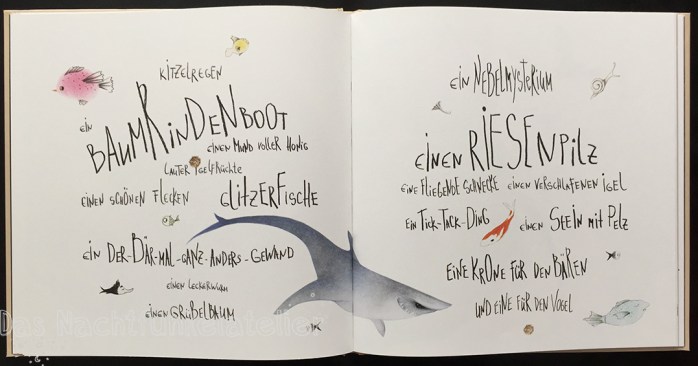 KITZELREGEN
EIN
BAUMRINDENBOOT
EINEN MUND VOLLER HONIG
LAUTER IGELFRÜCHTE
EINEN SCHÖNEN FLECKEN GLITZERFISCHE
EIN DER-BÄR-MAL-GANZ-ANDERS-GEWAND
EINEN LECKERWURM
EINEN GRÜBELBAUM
EIN NEBELMYSTERIUM
EINEN RIESENPILZ
EINE FLIEGENDE SCHNECKE EINEN VERSCHLAFENEN IGEL
EIN TICK-TACK-DING EINEN STEIN MIT PELZ
EINE KRONE FÜR DEN BÄREN
UND EINE FÜR DEN VOGEL